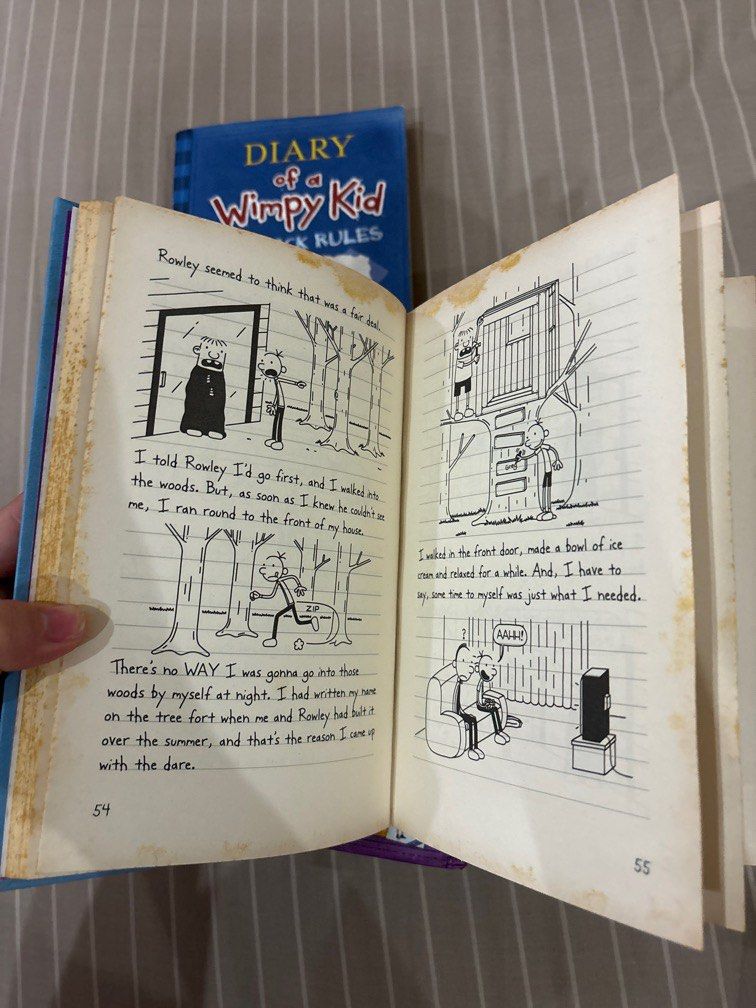 DIARY
of a
Wimpy Kid
RULES
Rowley seemed to think that was a fair deal.
I told Rowley I'd go first, and I walked into
the woods. But, as soon as I knew he couldn't see
me, I ran round to the front of my house.
ZIP
There's no WAY I was gonna go into those
woods by myself at night. I had written my name
on the tree fort when me and Rowley had built it
over the summer, and that's the reason I came up
with the dare.
54
Greg
I walked in the front door, made a bowl of ice
cream and relaxed for a while. And, I have to
say, some time to myself was just what I needed.
?
AAHH!
55